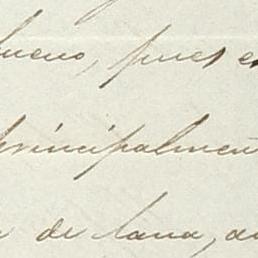 bueno, pues e
principalment
de lana, a